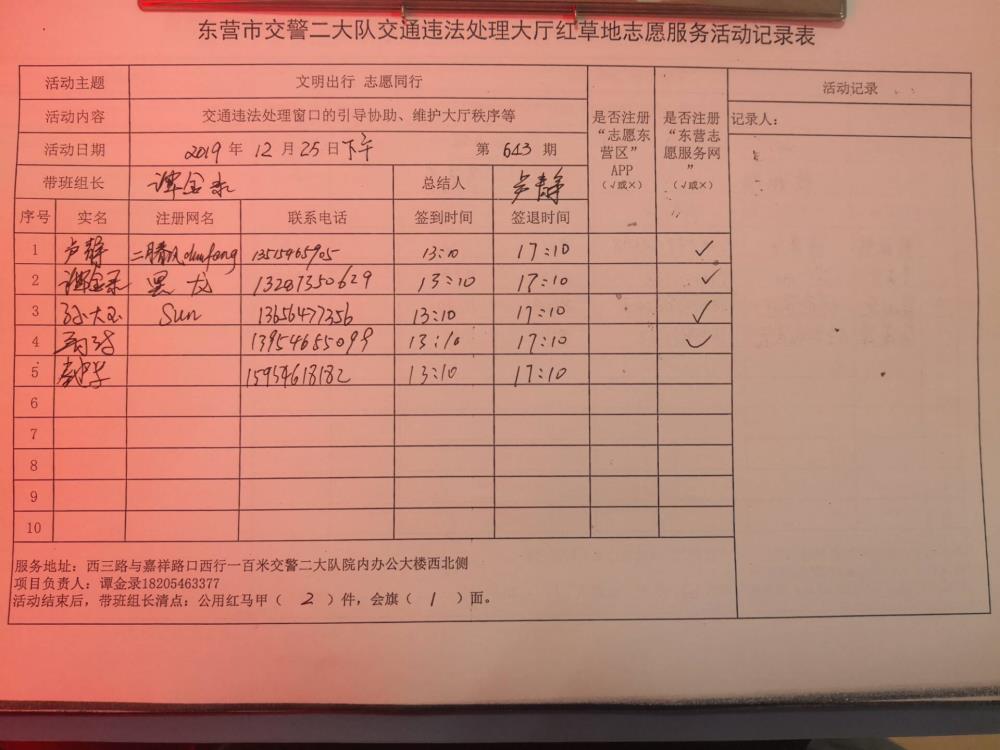 东营市交警二大队交通违法处理大厅红草地志愿服务活动记录表
活动主题 文明出行 志愿同行 是否注册“志愿东营区”APP（√或×） 是否注册“东营志愿服务网”（√或×） 活动记录
活动内容 交通违法处理窗口的引导协助、维护大厅秩序等 记录人：
活动日期 2019 年 12 月 25 日下午 第 643 期
带班组长 谭金录 总结人 卢静
序号 实名 注册网名 联系电话 签到时间 签退时间
1 卢静 13515465905 13:10 17:10 ✓
2 谭金录 黑龙 13287350629 13:10 17:10 ✓
3 孙大玉 Sun 13656477356 13:10 17:10 ✓
4 13954655099 13:10 17:10 ✓
5 15954618182 13:10 17:10
6
7
8
9
10
服务地址：西三路与嘉祥路口西行一百米交警二大队院内办公大楼西北侧
项目负责人：谭金录18205463377
活动结束后，带班组长清点：公用红马甲（ 2 ）件，会旗（ 1 ）面。